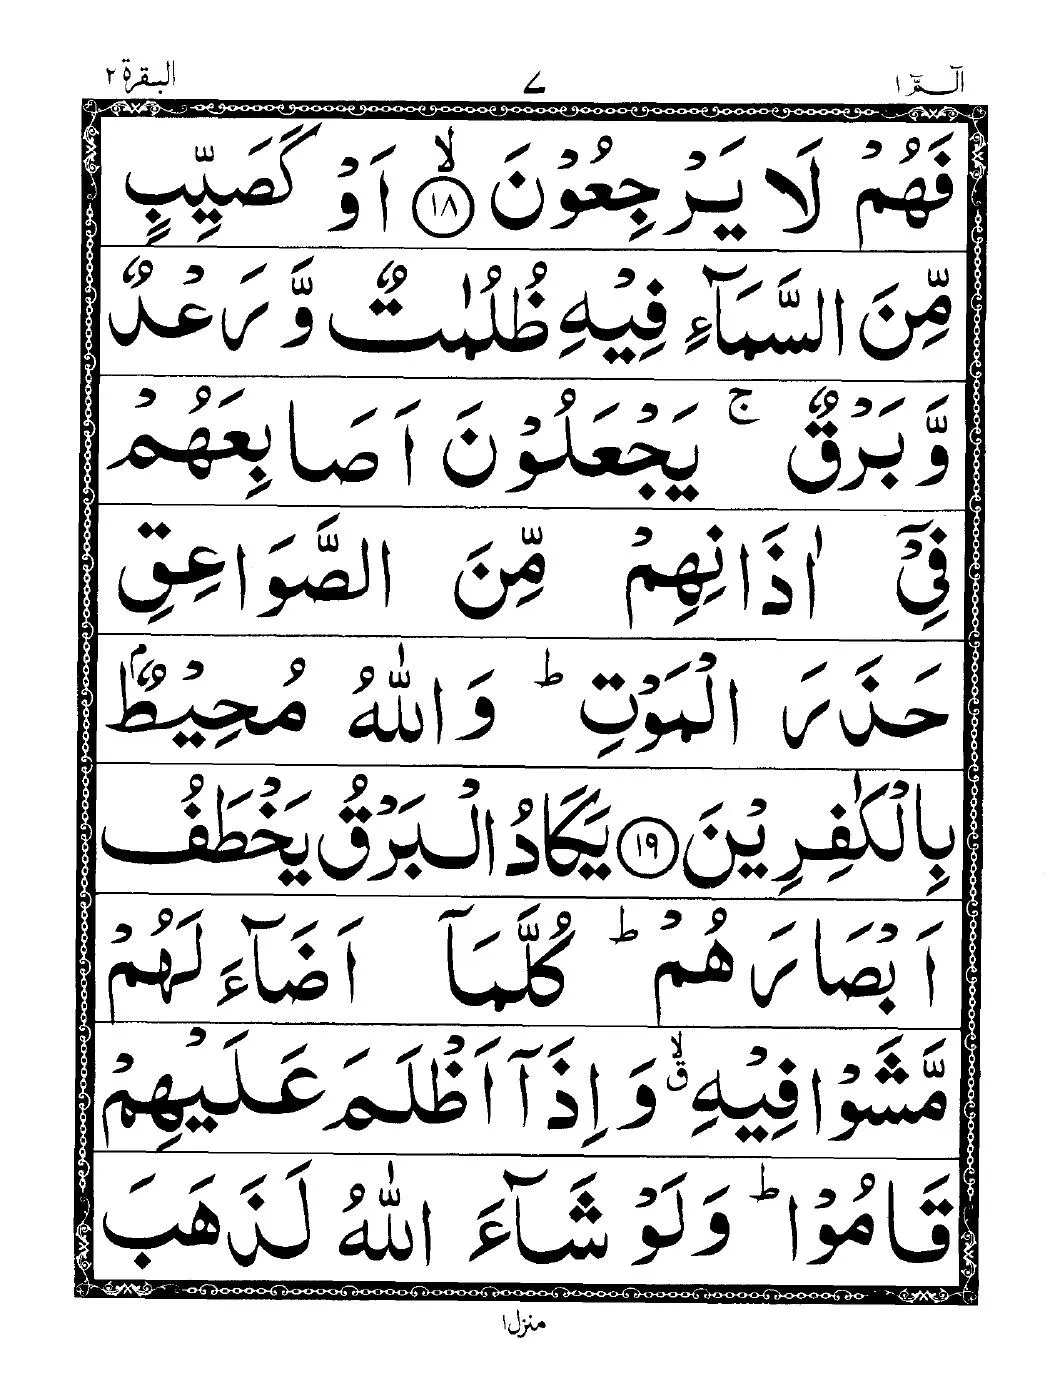 الٓـمّٓ ۱ ۷ البقرة ۲
فَهُمْ لَا يَرْجِعُوْنَ ۙ﴿۱۸﴾ اَوْ كَصَيِّبٍ
مِّنَ السَّمَآءِ فِيْهِ ظُلُمٰتٌ وَّرَعْدٌ
وَّبَرْقٌ ۚ يَجْعَلُوْنَ اَصَابِعَهُمْ
فِيْٓ اٰذَانِهِمْ مِّنَ الصَّوَاعِقِ
حَذَرَ الْمَوْتِ ؕ وَاللّٰهُ مُحِيْطٌۢ
بِالْكٰفِرِيْنَ ﴿۱۹﴾ يَكَادُ الْبَرْقُ يَخْطَفُ
اَبْصَارَهُمْ ؕ كُلَّمَآ اَضَآءَ لَهُمْ
مَّشَوْا فِيْهِ ۙق وَاِذَآ اَظْلَمَ عَلَيْهِمْ
قَامُوْا ؕ وَلَوْ شَآءَ اللّٰهُ لَذَهَبَ
منزل ۱